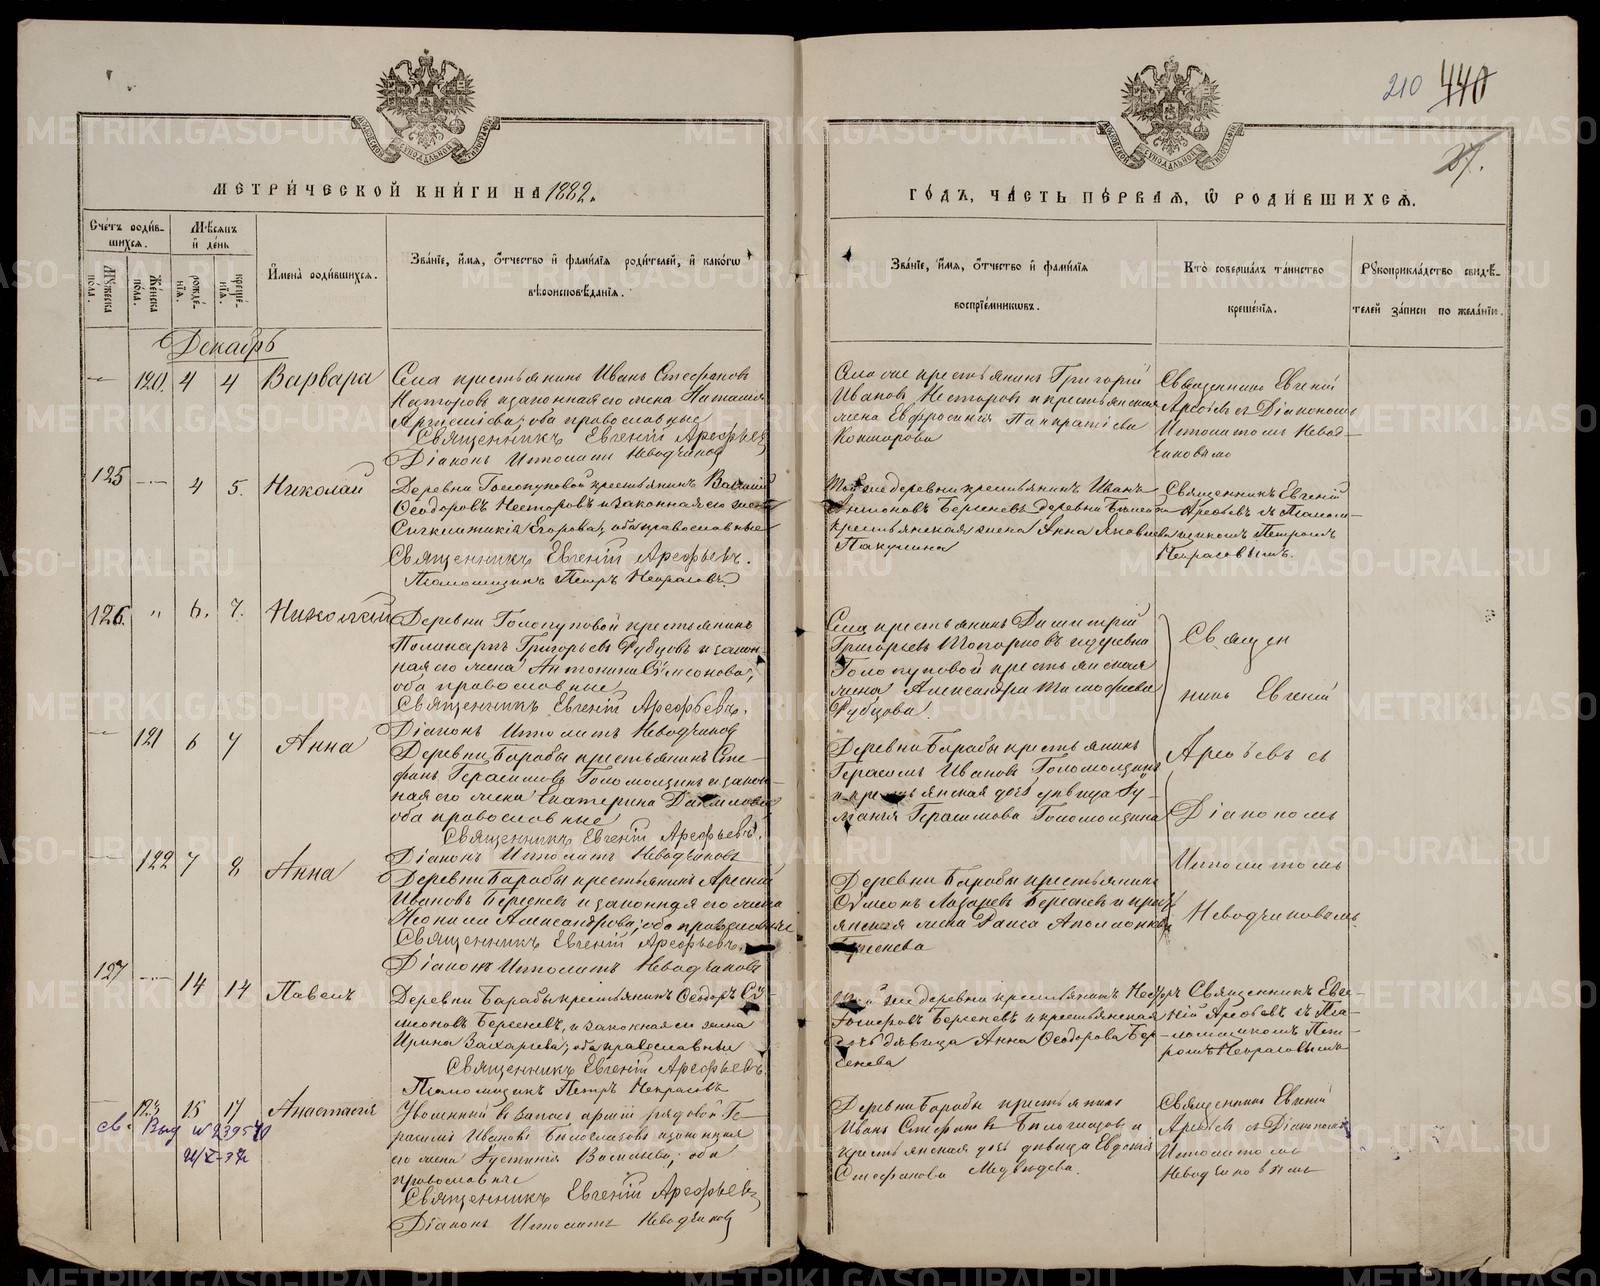 210 440
27.
МЕТРИЧЕСКОЙ КНИГИ НА 1882.
ГОДЪ, ЧАСТЬ ПЕРВАЯ, Ѡ РОДИВШИХСЯ.
Счетъ родив-
шихся.
Мѣсяцъ
и день
Мужеска пола.
Женска пола.
рожде-
нія.
креще-
нія.
Имена родившихся.
Званіе, имя, отчество и фамилія родителей, и какогѡ
вѣроисповѣданія.
Званіе, имя, отчество и фамилія
воспріемникѡвъ.
Кто совершалъ таинство
крещенія.
Рукоприкладство свидѣ-
телей записи по желанію.
Декабрь
120. 4 4 Варвара
Села крестьянинъ Иванъ Стефановъ
Несторовъ и законная его жена Наталія
оба православные
Священникъ Евгеній Арефьевъ
Діаконъ Ипполитъ Неводчиковъ
Села сего крестьянинъ Григорій
Ивановъ Несторовъ и крестьянская
жена Евфросинія Панкратіева
Священникъ Евгеній
Арефьевъ съ Діакономъ
Ипполитомъ Невод-
чиковымъ
125 4 5. Николай
Деревни Голопуповой крестьянинъ Василій
Ѳеодоровъ Несторовъ и законная его жена
Егорова, оба православные
Священникъ Евгеній Арефьевъ.
Псаломщикъ Петръ Некрасовъ.
Той же деревни крестьянинъ Иванъ
Антоновъ Берсеневъ деревни
крестьянская жена Анна Яковлева
Пакулина
Священникъ Евгеній
Арефьевъ съ Псалом-
щикомъ Петромъ
Некрасовымъ.
126. " 6. 7. Николай
Деревни Голопуповой крестьянинъ
Поликарпъ Григорьевъ Рубцовъ и закон-
ная его жена Антонина Симеонова,
оба православные
Священникъ Евгеній Арефьевъ.
Діаконъ Ипполитъ Неводчиковъ
Села крестьянинъ Димитрій
Григорьевъ Топорковъ и деревни
Голопуповой крестьянская
жена Александра Тимофеева
Рубцова.
Священ
никъ Евгеній
Арефьевъ съ
Діакономъ
Ипполитомъ
Неводчиковымъ.
121 6 7 Анна
Деревни Барабы крестьянинъ Сте-
фанъ Герасимовъ Голомолзинъ и закон-
ная его жена Екатерина Данилова
оба православные
Священникъ Евгеній Арефьевъ.
Діаконъ Ипполитъ Неводчиковъ
Деревни Барабы крестьянинъ
Герасимъ Ивановъ Голомолзинъ
и крестьянская дочь дѣвица Лу-
Герасимова Голомолзина
122 7 8 Анна
Деревни Барабы крестьянинъ Арсеній
Ивановъ Берсеневъ и законная его жена
Неонила Александрова; оба православные
Священникъ Евгеній Арефьевъ.
Діаконъ Ипполитъ Неводчиковъ
Деревни Барабы крестьянинъ
Симеонъ Лазаревъ Берсеневъ и кресть-
янская жена Раиса Аполлонова
Берсенева
127 14 14 Павелъ
Деревни Барабы крестьянинъ Ѳеодоръ Си-
меоновъ Берсеневъ, и законная его жена
Ирина Захарьева; оба православные
Священникъ Евгеній Арефьевъ.
Псаломщикъ Петръ Некрасовъ
Той же деревни крестьянинъ Несторъ
Берсеневъ и крестьянская
дочь дѣвица Анна Ѳеодорова Бер-
сенева
Священникъ Евге-
ній Арефьевъ съ Пса-
ломщикомъ Пет-
ромъ Некрасовымъ
123 15 17 Анастасія
св. Выд № 239570
Уволенный въ запасъ арміи рядовой Ге-
расимъ Ивановъ Белоглазовъ и законная
его жена Іустинія Васильева; оба
православные
Священникъ Евгеній Арефьевъ
Діаконъ Ипполитъ Неводчиковъ
Деревни Барабы крестьянинъ
Иванъ Стефановъ Белоглазовъ и
крестьянская дочь дѣвица Евдокія
Стефанова Медвѣдева.
Священникъ Евгеній
Арефьевъ съ Діакономъ
Ипполитомъ
Неводчиковымъ
METRIKI.GASO-URAL.RU